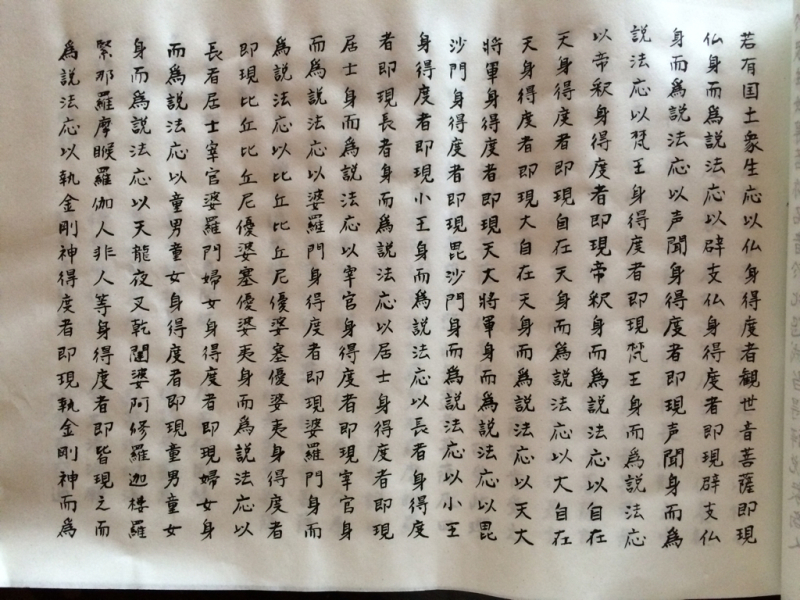 若有国土衆生応以仏身得度者観世音菩薩即現
仏身而爲説法応以辟支仏身得度者即現辟支仏
身而爲説法応以声聞身得度者即現声聞身而爲
説法応以梵王身得度者即現梵王身而爲説法応
以帝釈身得度者即現帝釈身而爲説法応以自在
天身得度者即現自在天身而爲説法応以大自在
天身得度者即現大自在天身而爲説法応以天大
将軍身得度者即現天大将軍身而爲説法応以毘
沙門身得度者即現毘沙門身而爲説法応以小王
身得度者即現小王身而爲説法応以長者身得度
者即現長者身而爲説法応以居士身得度者即現
居士身而爲説法応以宰官身得度者即現宰官身
而爲説法応以婆羅門身得度者即現婆羅門身而
爲説法応以比丘比丘尼優婆塞優婆夷身得度者
即現比丘比丘尼優婆塞優婆夷身而爲説法応以
長者居士宰官婆羅門婦女身得度者即現婦女身
而爲説法応以童男童女身得度者即現童男童女
身而爲説法応以天龍夜叉乾闥婆阿修羅迦樓羅
緊那羅摩睺羅伽人非人等身得度者即皆現之而
爲説法応以執金剛神得度者即現執金剛神而爲